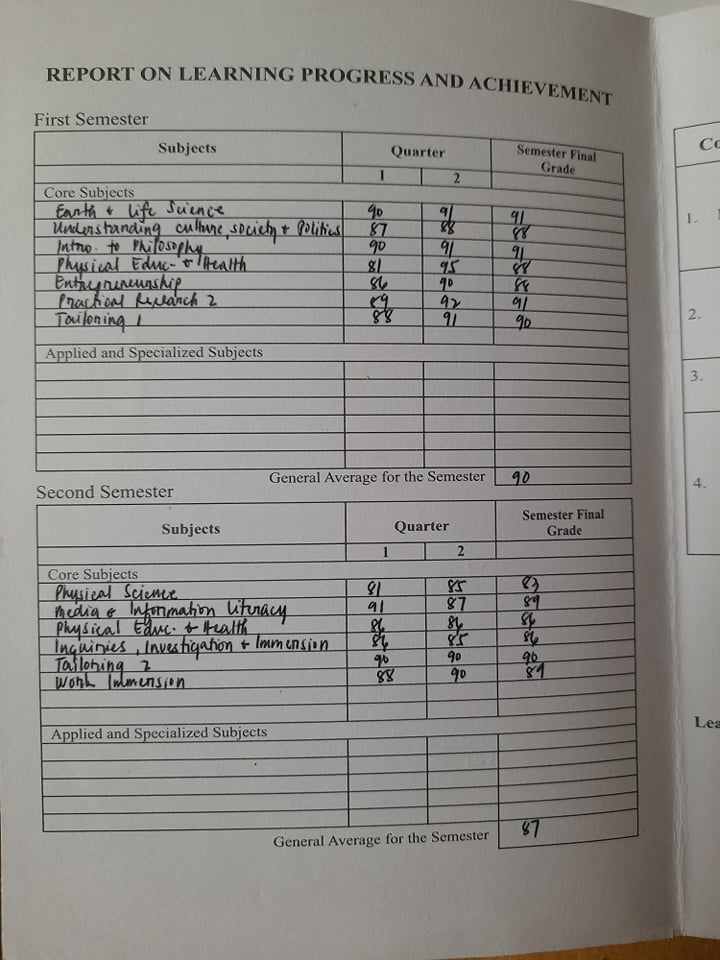 REPORT ON LEARNING PROGRESS AND ACHIEVEMENT
First Semester
Subjects Quarter Semester Final Grade
1 2
Core Subjects
Earth & Life Science 90 91 91
Understanding culture, society & Politics 87 88 88
Intro. to Philosophy 90 91 91
Physical Educ. & Health 81 95 88
Entrepreneurship 86 90 88
Practical Research 2 89 92 91
Tailoring 1 88 91 90
Applied and Specialized Subjects
General Average for the Semester 90
Second Semester
Subjects Quarter Semester Final Grade
1 2
Core Subjects
Physical Science 81 85 83
Media & Information Literacy 91 87 89
Physical Educ. & Health 86 86 86
Inquiries, Investigation & Immersion 86 85 86
Tailoring 2 90 90 90
Work Immersion 88 90 89
Applied and Specialized Subjects
General Average for the Semester 87
1.
2.
3.
4.